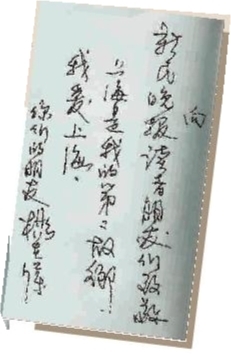 向
新民晚报读者朋友们致敬
上海是我的第二故乡.
我爱上海.
你们的朋友